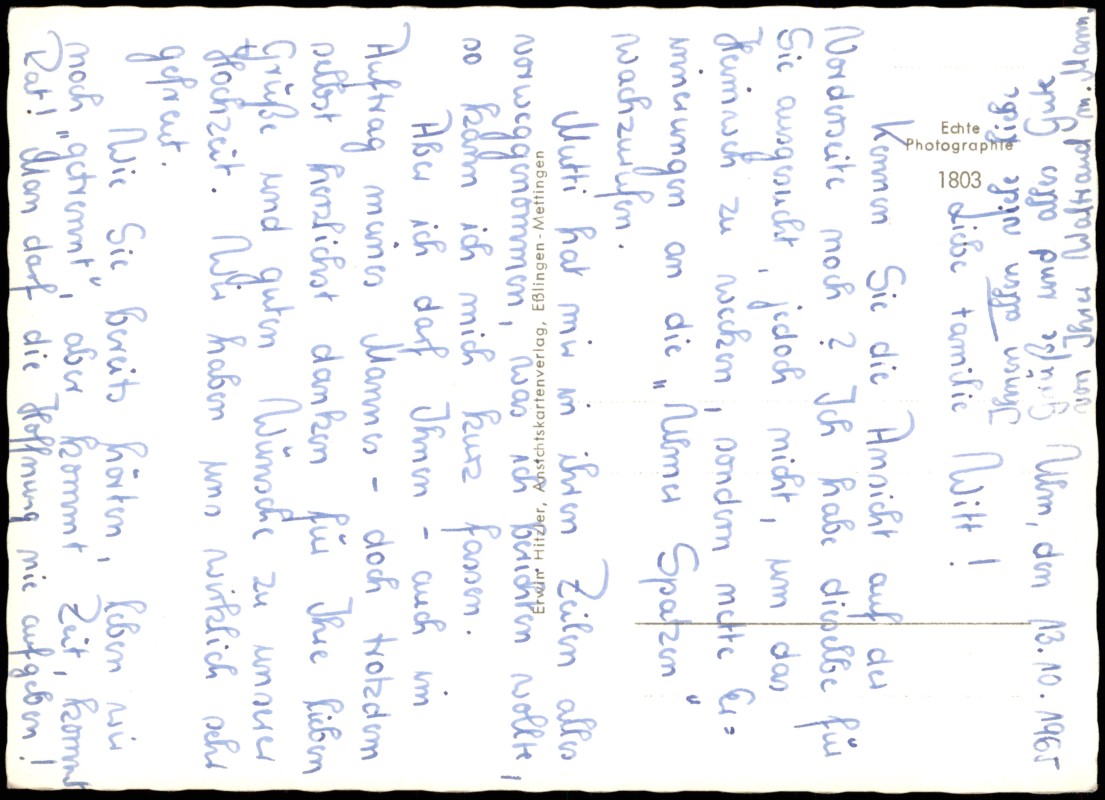 Ulm, den 13.10.1965
Liebe Familie Witt!
Kennen Sie die Ansicht auf der
Vorderseite noch? Ich habe dieselbe für
Sie ausgesucht, jedoch nicht, um das
Heimweh zu wecken, sondern nette Er=
innerungen an die "Ulmer Spatzen"
wachzurufen.
Mutti hat mir in ihren Zeilen alles
vorweggenommen, was ich berichten wollte,
so kann ich mich kurz fassen.
Aber ich darf Ihnen - auch im
Auftrag meines Mannes - doch trotzdem
selbst herzlichst danken für Ihre lieben
Grüße und guten Wünsche zu unserer
Hochzeit. Wir haben uns wirklich sehr
gefreut.
Wie Sie bereits hörten, leben wir
noch "getrennt", aber kommt Zeit, kommt
Rat! Man darf die Hoffnung nie aufgeben!
Ihnen allen viele liebe
Grüße und alles Gute
von Ihrer Waltraud m. Mann
Echte
Photographie
1803
Erwin Hitzler, Ansichtskartenverlag, Eßlingen-Mettingen